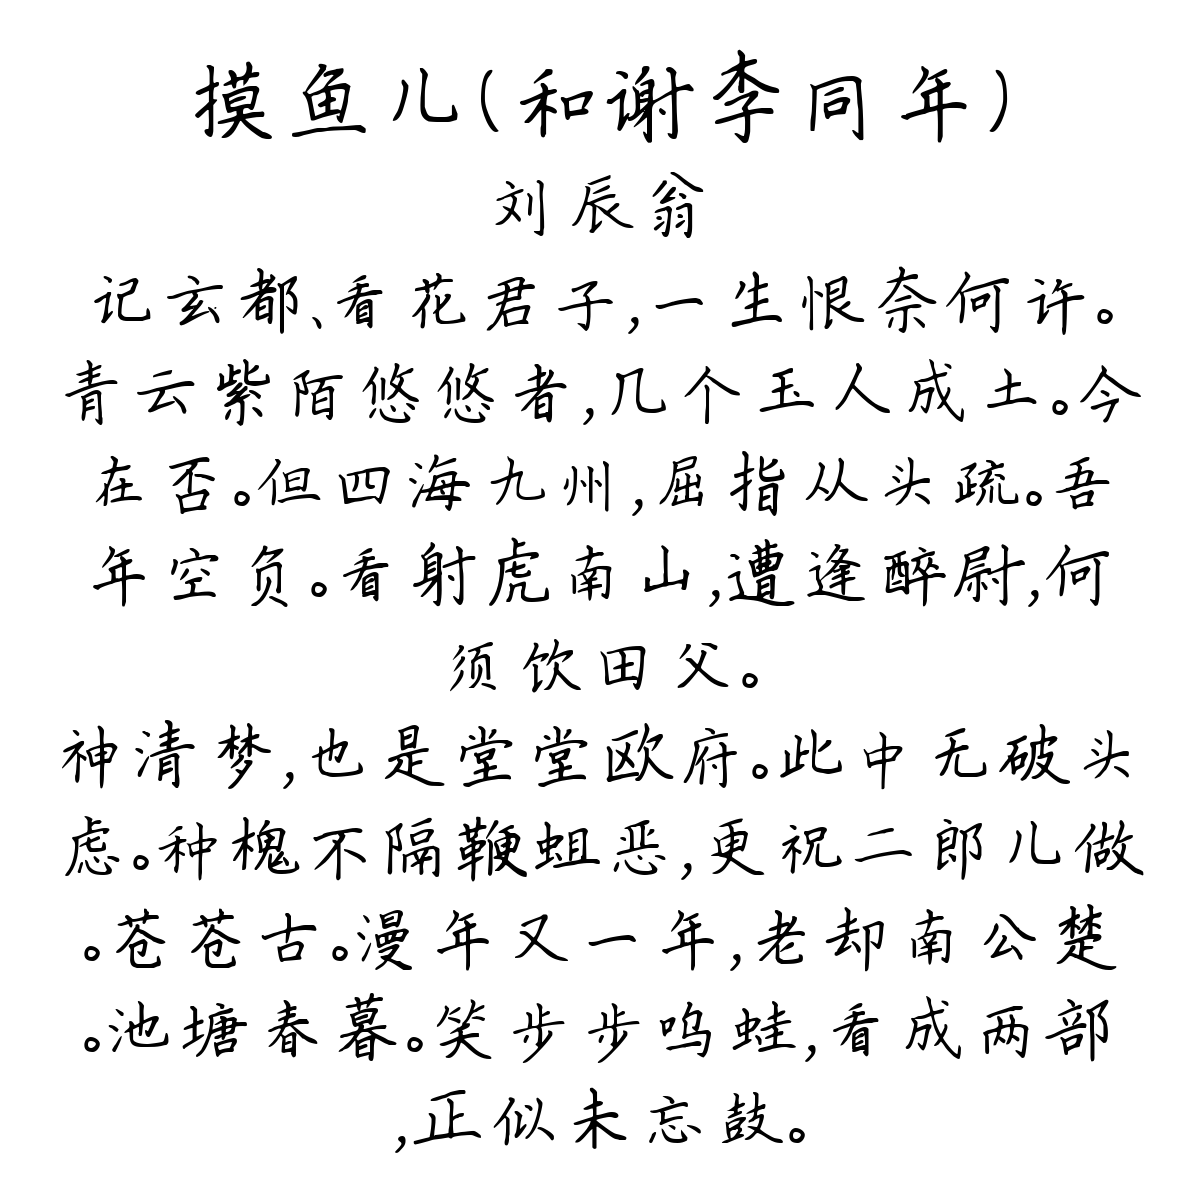 摸鱼儿(和谢李同年)
刘辰翁
记玄都、看花君子,一生恨奈何许。
青云紫陌悠悠者,几个玉人成土。今
在否。但四海九州,屈指从头疏。吾
年空负。看射虎南山,遭逢醉尉,何
须饮田父。
神清梦,也是堂堂欧府。此中无破头
虑。种槐不隔鞭蛆恶,更祝二郎儿做
。苍苍古。漫年又一年,老却南公楚
。池塘春暮。笑步步鸣蛙,看成两部
,正似未忘鼓。